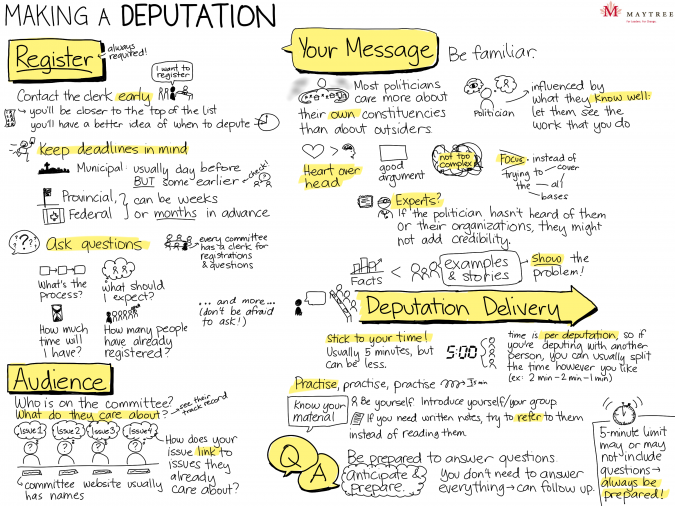 MAKING A DEPUTATION
MAYTREE
Register
always
required!
I want to
register
Contact the clerk early
you'll be closer to the top of the list
you'll have a better idea of when to depute
Keep deadlines in mind
Municipal: usually day before
BUT some earlier
check!
Provincial,
Federal
can be weeks
or months in advance
Ask questions
every committee
has a clerk for
registrations
& questions
What's the
process?
what should
I expect?
How much
time will
I have?
How many people
have already
registered?
... and more...
(don't be afraid
to ask!)
Audience
Who is on the committee?
What do they care about?
see their
track record
Issue 1
Issue 2
Issue 3
Issue 4
How does your
issue link to
issues they
already
care about?
committee website usually
has names
Your Message
Be familiar.
Most politicians
care more about
their own constituencies
than about outsiders.
Politician
influenced by
what they know well:
let them see the
work that you do
Heart over
head
good
argument
not too
complex
FOCUS instead of
trying to cover
the all
bases
Experts?
If the politician hasn't heard of them
or their organizations, they might
not add credibility.
Facts
<
examples
& stories
Show the
problem!
Deputation Delivery
Stick to your time!
Usually 5 minutes, but
can be less.
5:00
time is per deputation, so if
you're deputing with another
person, you can usually split
the time however you like
(ex: 2 min - 2 min - 1 min)
Practise, practise, practise
know your
material
Be yourself. Introduce yourself/your group
If you need written notes, try to refer to them
instead of reading them.
Q
A
Be prepared to answer questions.
anticipate &
prepare.
You don't need to answer
everything → can follow up.
5-minute limit
may or may
not include
questions →
always be
prepared!